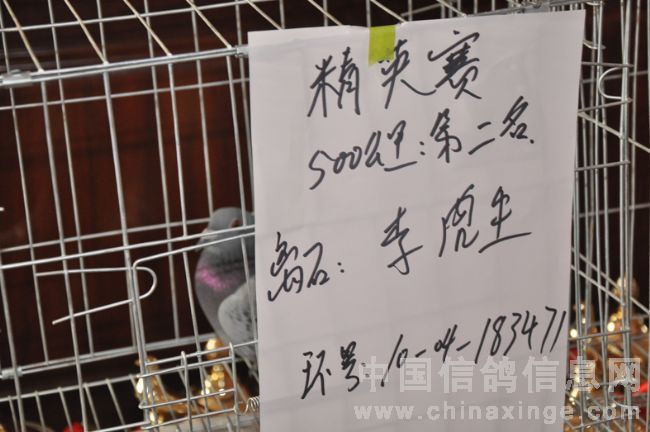 精英赛
500公里:第二名
离石: 李虎生
环号:10-04-183471
中国信鸽信息网
www.chinaxinge.com